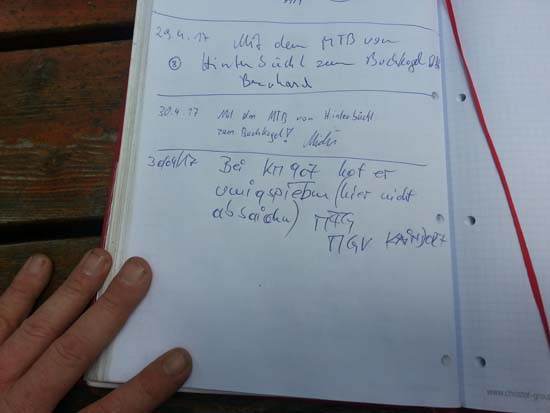 29.4.17 Mit dem MTB von
Hinterbüchl zum Buchkogel
Bernhard
30.4.17 Mit dem MTB von Hinterbüchl
zum Buchkogel!
30/04/17 Bei km 907 hot er
umigspieben (hier nicht
MTG
MGV